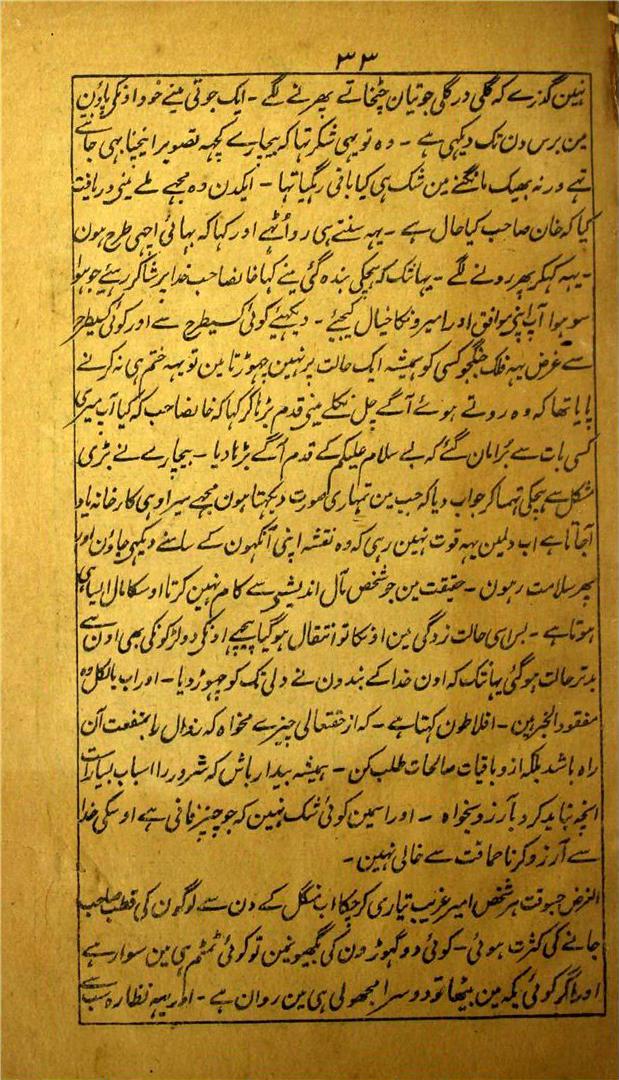 ۳۳
نہین گذرے کہ گلی در گلی جوتیان چٹخاتے پھرنے لگے ۔ ایک جوتی مینے خود اونکی پاؤن
مین برس دن تک دیکہی ہے ۔ وہ تو یہی شکر تہا کہ بیچارے کچہہ تصویر اینچنا بہی جانتے
تہے ورنہ بھیک مانگنے مین شک ہی کیا باقی رہگیا تہا ۔ ایکدن وہ مجہے ملے مینی دریافت
کیا کہ خان صاحب کیا حال ہے ۔ یہہ سنتے ہی رو اُٹہے اور کہا کہ بہائی اچہی طرح ہون
۔ یہہ کہکر پھر رونے لگے ۔ یہانتک کہ ہچکی بندہ گئی مینے کہا خانصاحب خدا پر شاکر رہئے جو ہوا
سو ہوا آپ اپنی موافق اور امیرونکا خیال کیجئے ۔ دیکہئے کوئی کسیطرح سے اور کوئی کسیطرح
سے غرض یہہ فلک جنگجو کسی کو ہمیشہ ایک حالت پر نہین چہوڑتا مین تو یہہ ختم ہی نہ کرنے
پایا تھا کہ وہ روتے ہوئے آگے چل نکلے مینی قدم بڑہا کر کہا کہ خانصاحب کہ کیا آپ میری
کسی بات سے بُرا مان گئے کہ بے سلام علیکم کے قدم آگے بڑہا دیا ۔ بیچارے نے بڑی
مشکل سے ہچکی تہما کر جواب دیا کہ جب مین تمہاری صورت دیکہتا ہون مجہے میرا وہی کارخانہ یاد
آجاتا ہے اب دلمین یہہ قوت نہین رہی کہ وہ نقشہ اپنی آنکہون کے سامنے دیکہی جاؤن اور
پھر سلامت رہون ۔ حقیقت مین جو شخص مآل اندیشی سے کام نہین کرتا اوسکا مال ایسا ہی
ہوتا ہے ۔ بس اسی حالت زدگی مین اونکا تو انتقال ہوگیا پیچہے اونکی دو لڑکونکی بھی اون سے
بدتر حالت ہوگئی یہانتک کہ اون خدا کے بندون نے دلی تک کو چہوڑ دیا ۔ اور اب بالکل وہ
مفقود الخبر ہین ۔ افلاطون کہتا ہے ۔ کہ از حقتعالی چیزے مخواہ کہ زوال را بمنفعت آن
راہ باشد بلکہ ازو باقیات صالحات طلب کن ۔ ہمیشہ بیدار باش کہ شرور را اسباب بسیارست
انچہ نباید کرد بآرزو مخواہ ۔ اور اسمین کوئی شک نہین کہ جو چیز فانی ہے اوسکی خدا
سے آرزو کرنا حماقت سے خالی نہین ۔
الغرض جسوقت ہر شخص امیر غریب تیاری کرچکا اب منگل کے دن سے لوگون کی قطب صاحب
جانے کی کثرت ہوئی ۔ کوئی دو گہوڑون کی بگھیونمین تو کوئی ٹمٹم ہی مین سوار ہے
اور اگر کوئی یکہ مین بیٹھا تو دوسرا مجہولی ہی مین روان ہے ۔ اور یہہ نظارہ سب سے